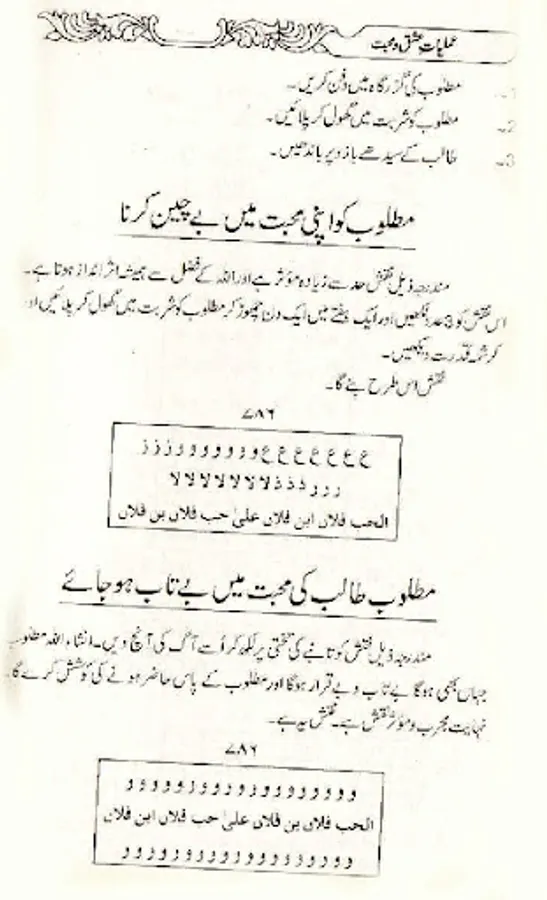 عملیات عشق و محبت
1۔ مطلوب کی گزرگاہ میں دفن کریں۔
2۔ مطلوب کو شربت میں گھول کر پلائیں۔
3۔ طالب کے سیدھے بازو پر باندھیں۔
مطلوب کو اپنی محبت میں بے چین کرنا
مندرجہ ذیل نقش حد سے زیادہ مؤثر ہے اور اللہ کے فضل سے ہمیشہ اثر انداز ہوتا ہے۔
اس نقش کو 3 عدد لکھیں اور ایک ہفتے میں ایک دن چھوڑ کر مطلوب کو شربت میں گھول کر پلائیں اور
کرشمہ قدرت دیکھیں۔
نقش اس طرح بنے گا۔
۷۸۶
ع ع ع ع ع ع ع ع و و و و و و و و ز ز ز ز
ر ر ر ذ ذ ذ لا لا لا لا لا لا لا لا
الحب فلاں ابن فلاں علیٰ حب فلاں بن فلاں
مطلوب طالب کی محبت میں بے تاب ہو جائے
مندرجہ ذیل نقش کو تانبے کی تختی پر لکھ کر اُسے آگ کی آنچ دیں۔ انشاء اللہ مطلوب
جہاں بھی ہوگا بے تاب و بے قرار ہوگا اور مطلوب کے پاس حاضر ہونے کی کوشش کرے گا۔
نہایت مجرب و مؤثر نقش ہے۔ نقش یہ ہے۔
۷۸۶
و و و و و و و و و و و و و و و و و و
الحب فلاں بن فلاں علیٰ حب فلاں ابن فلاں
و و و و و و و و و و و و و و و و و و